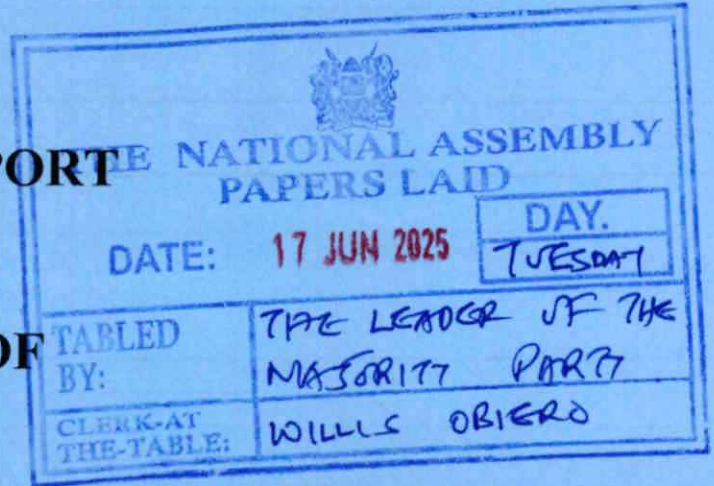 PORT
THE NATIONAL ASSEMBLY
PAPERS LAID
DATE: 17 JUN 2025
DAY.
TUESDAY
OF
TABLED BY:
THE LEADER OF THE
MAJORITY PARTY
CLERK-AT
THE-TABLE:
WILLIS OBIERO